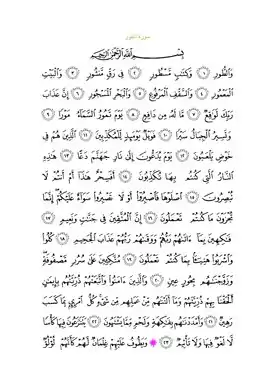 سورة الطور
بِسْمِ ٱللَّهِ ٱلرَّحْمَٰنِ ٱلرَّحِيمِ
وَٱلطُّورِ ١ وَكِتَٰبٍ مَّسْطُورٍ ٢ فِى رَقٍّ مَّنشُورٍ ٣ وَٱلْبَيْتِ
ٱلْمَعْمُورِ ٤ وَٱلسَّقْفِ ٱلْمَرْفُوعِ ٥ وَٱلْبَحْرِ ٱلْمَسْجُورِ ٦ إِنَّ عَذَابَ
رَبِّكَ لَوَٰقِعٌ ٧ مَّا لَهُۥ مِن دَافِعٍ ٨ يَوْمَ تَمُورُ ٱلسَّمَآءُ مَوْرًا ٩
وَتَسِيرُ ٱلْجِبَالُ سَيْرًا ١٠ فَوَيْلٌ يَوْمَئِذٍ لِّلْمُكَذِّبِينَ ١١ ٱلَّذِينَ هُمْ فِى
خَوْضٍ يَلْعَبُونَ ١٢ يَوْمَ يُدَعُّونَ إِلَىٰ نَارِ جَهَنَّمَ دَعًّا ١٣ هَٰذِهِ
ٱلنَّارُ ٱلَّتِى كُنتُم بِهَا تُكَذِّبُونَ ١٤ أَفَسِحْرٌ هَٰذَآ أَمْ أَنتُمْ لَا
تُبْصِرُونَ ١٥ ٱصْلَوْهَا فَٱصْبِرُوٓا۟ أَوْ لَا تَصْبِرُوا۟ سَوَآءٌ عَلَيْكُمْ إِنَّمَا
تُجْزَوْنَ مَا كُنتُمْ تَعْمَلُونَ ١٦ إِنَّ ٱلْمُتَّقِينَ فِى جَنَّٰتٍ وَنَعِيمٍ ١٧
فَٰكِهِينَ بِمَآ ءَاتَىٰهُمْ رَبُّهُمْ وَوَقَىٰهُمْ رَبُّهُمْ عَذَابَ ٱلْجَحِيمِ ١٨ كُلُوا۟
وَٱشْرَبُوا۟ هَنِيٓـًٔۢا بِمَا كُنتُمْ تَعْمَلُونَ ١٩ مُتَّكِـِٔينَ عَلَىٰ سُرُرٍ مَّصْفُوفَةٍ
وَزَوَّجْنَٰهُم بِحُورٍ عِينٍ ٢٠ وَٱلَّذِينَ ءَامَنُوا۟ وَٱتَّبَعَتْهُمْ ذُرِّيَّتُهُم بِإِيمَٰنٍ
أَلْحَقْنَا بِهِمْ ذُرِّيَّتَهُمْ وَمَآ أَلَتْنَٰهُم مِّنْ عَمَلِهِم مِّن شَىْءٍ كُلُّ ٱمْرِئٍۭ بِمَا كَسَبَ
رَهِينٌ ٢١ وَأَمْدَدْنَٰهُم بِفَٰكِهَةٍ وَلَحْمٍ مِّمَّا يَشْتَهُونَ ٢٢ يَتَنَٰزَعُونَ فِيهَا كَأْسًا
لَّا لَغْوٌ فِيهَا وَلَا تَأْثِيمٌ ٢٣ وَيَطُوفُ عَلَيْهِمْ غِلْمَانٌ لَّهُمْ كَأَنَّهُمْ لُؤْلُؤٌ